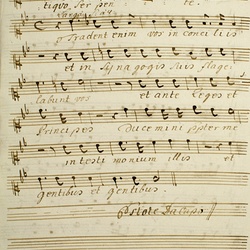 tiquo, Ser pen te.
Tradent enim vos in conciliis
et in Synagogis suis flage
labunt vos et ante Reges et
Principes ducemini propter me
in testimonium illis et
gentibus et gentibus.
Da Capo